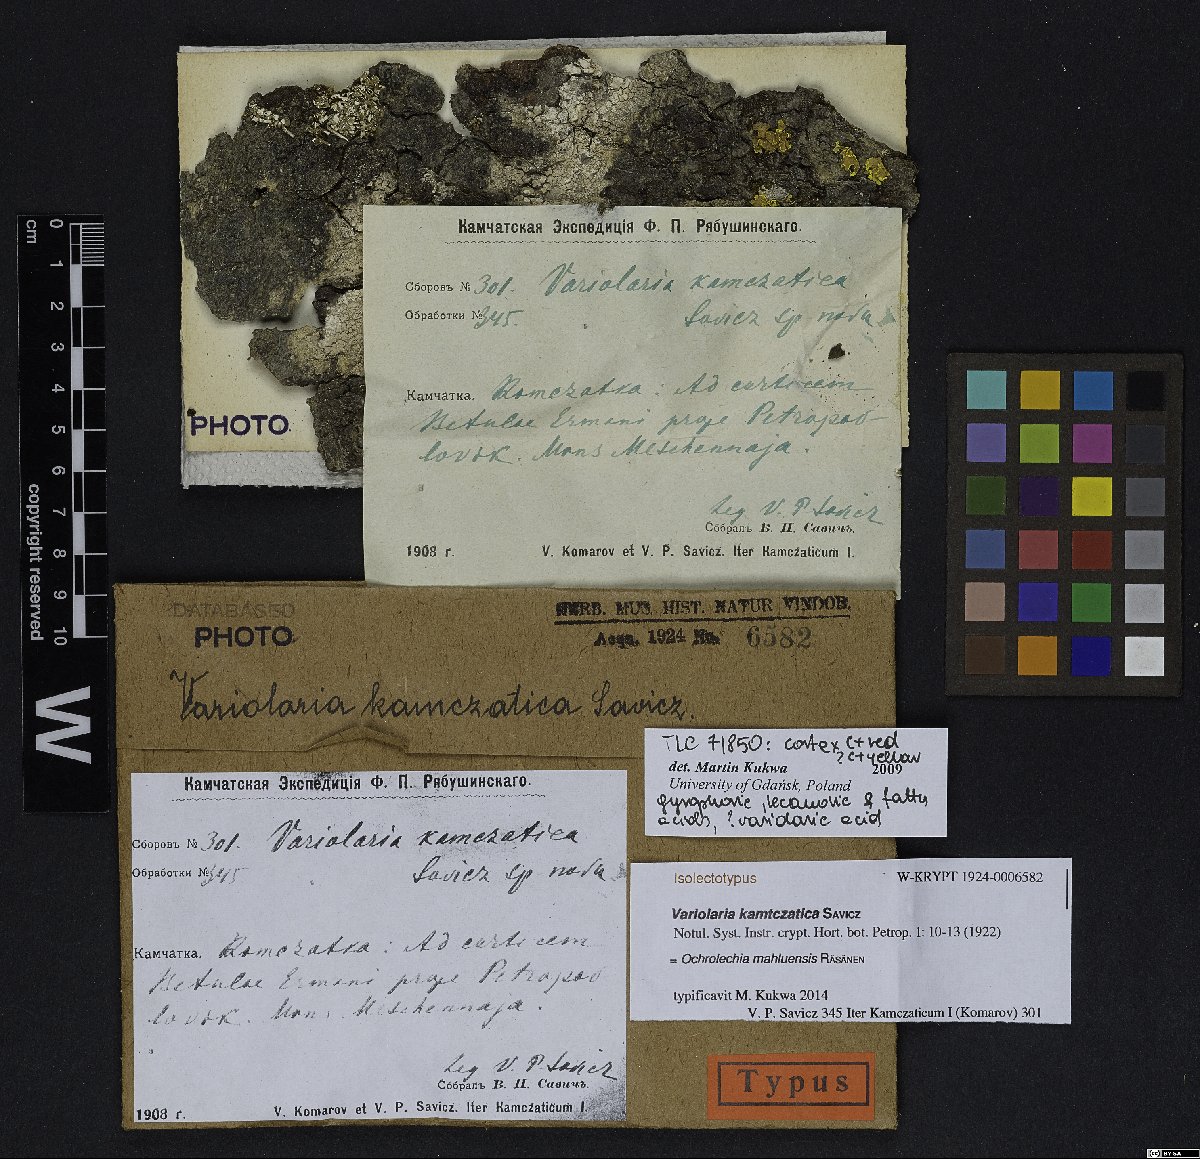 Камчатская Экспедиція Ф. П. Рябушинскаго.
Сборовъ № 301. Variolaria kamczatica
Обработки № 345. Savicz sp nova
Камчатка. Kamczatka: Ad corticem
Betulae Ermani prope Petropav
lovsk. Mons Meschennaja.
Leg V. P. Savicz
Собралъ В. П. Савичъ.
1908 г. V. Komarov et V. P. Savicz. Iter Kamczaticum I.
PHOTO
0
cm
1
2
3
4
5
6
7
8
9
10
copyright reserved
W
DATABASED
PHOTO
HERB. MUS. HIST. NATUR VINDOB.
Acqu. 1924 No. 6582
Variolaria kamczatica Savicz.
TLC 71850: cortex C+red
? C+yellow
det. Martin Kukwa 2009
University of Gdańsk, Poland
gyrophoric, lecanoric & fatty
acids, ? variolaric acid
Камчатская Экспедиція Ф. П. Рябушинскаго.
Сборовъ № 301. Variolaria kamczatica
Обработки № 345 Savicz sp nova
Камчатка. Kamczatka: Ad corticem
Betulae Ermani prope Petropav
lovsk. Mons Meschennaja.
Leg V. P. Savicz
Собралъ В. П. Савичъ.
1908 г. V. Komarov et V. P. Savicz. Iter Kamczaticum I.
Isolectotypus W-KRYPT 1924-0006582
Variolaria kamtczatica SAVICZ
Notul. Syst. Instr. crypt. Hort. bot. Petrop. 1: 10-13 (1922)
= Ochrolechia mahluensis RÄSÄNEN
typificavit M. Kukwa 2014
V. P. Savicz 345 Iter Kamczaticum I (Komarov) 301
Typus
cc BY SA